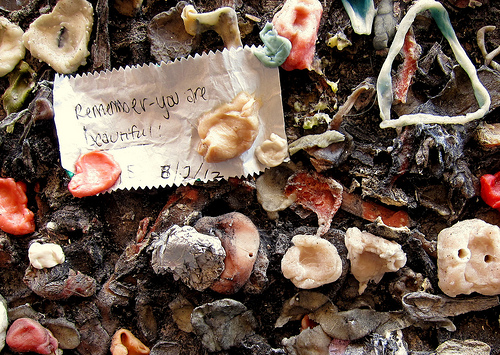 Remember-you are
beautiful!
8/2/12